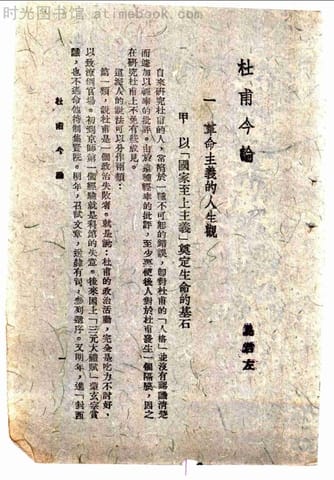 时光图书馆 atimebook.com
杜甫今論
易君左
一 革命主義的人生觀
甲 以「國家至上主義」奠定生命的基石
自來研究杜甫的人，常陷於一種不可恕的錯誤，卽對杜甫的「人格」並沒有認識清楚
而遽加以輕率的批評。由於這種輕率的批評，至少要使後人對於杜甫發生一個隔膜，因之
在研究杜甫上不免有被成見。
這派人的說法可以分作兩類：
第一類，說杜甫是一個政治失敗者。就是說：杜甫的政治活動，完全是吃力不討好，
以致潦倒官場。初到京師第一個經驗就是科舉的失意。後來因上「三元大禮賦」蒙玄宗賞
識，也不過命他待制集賢院。明年，召試文章，送隸有司，參列選序。又明年，進「封西
杜甫今論
一